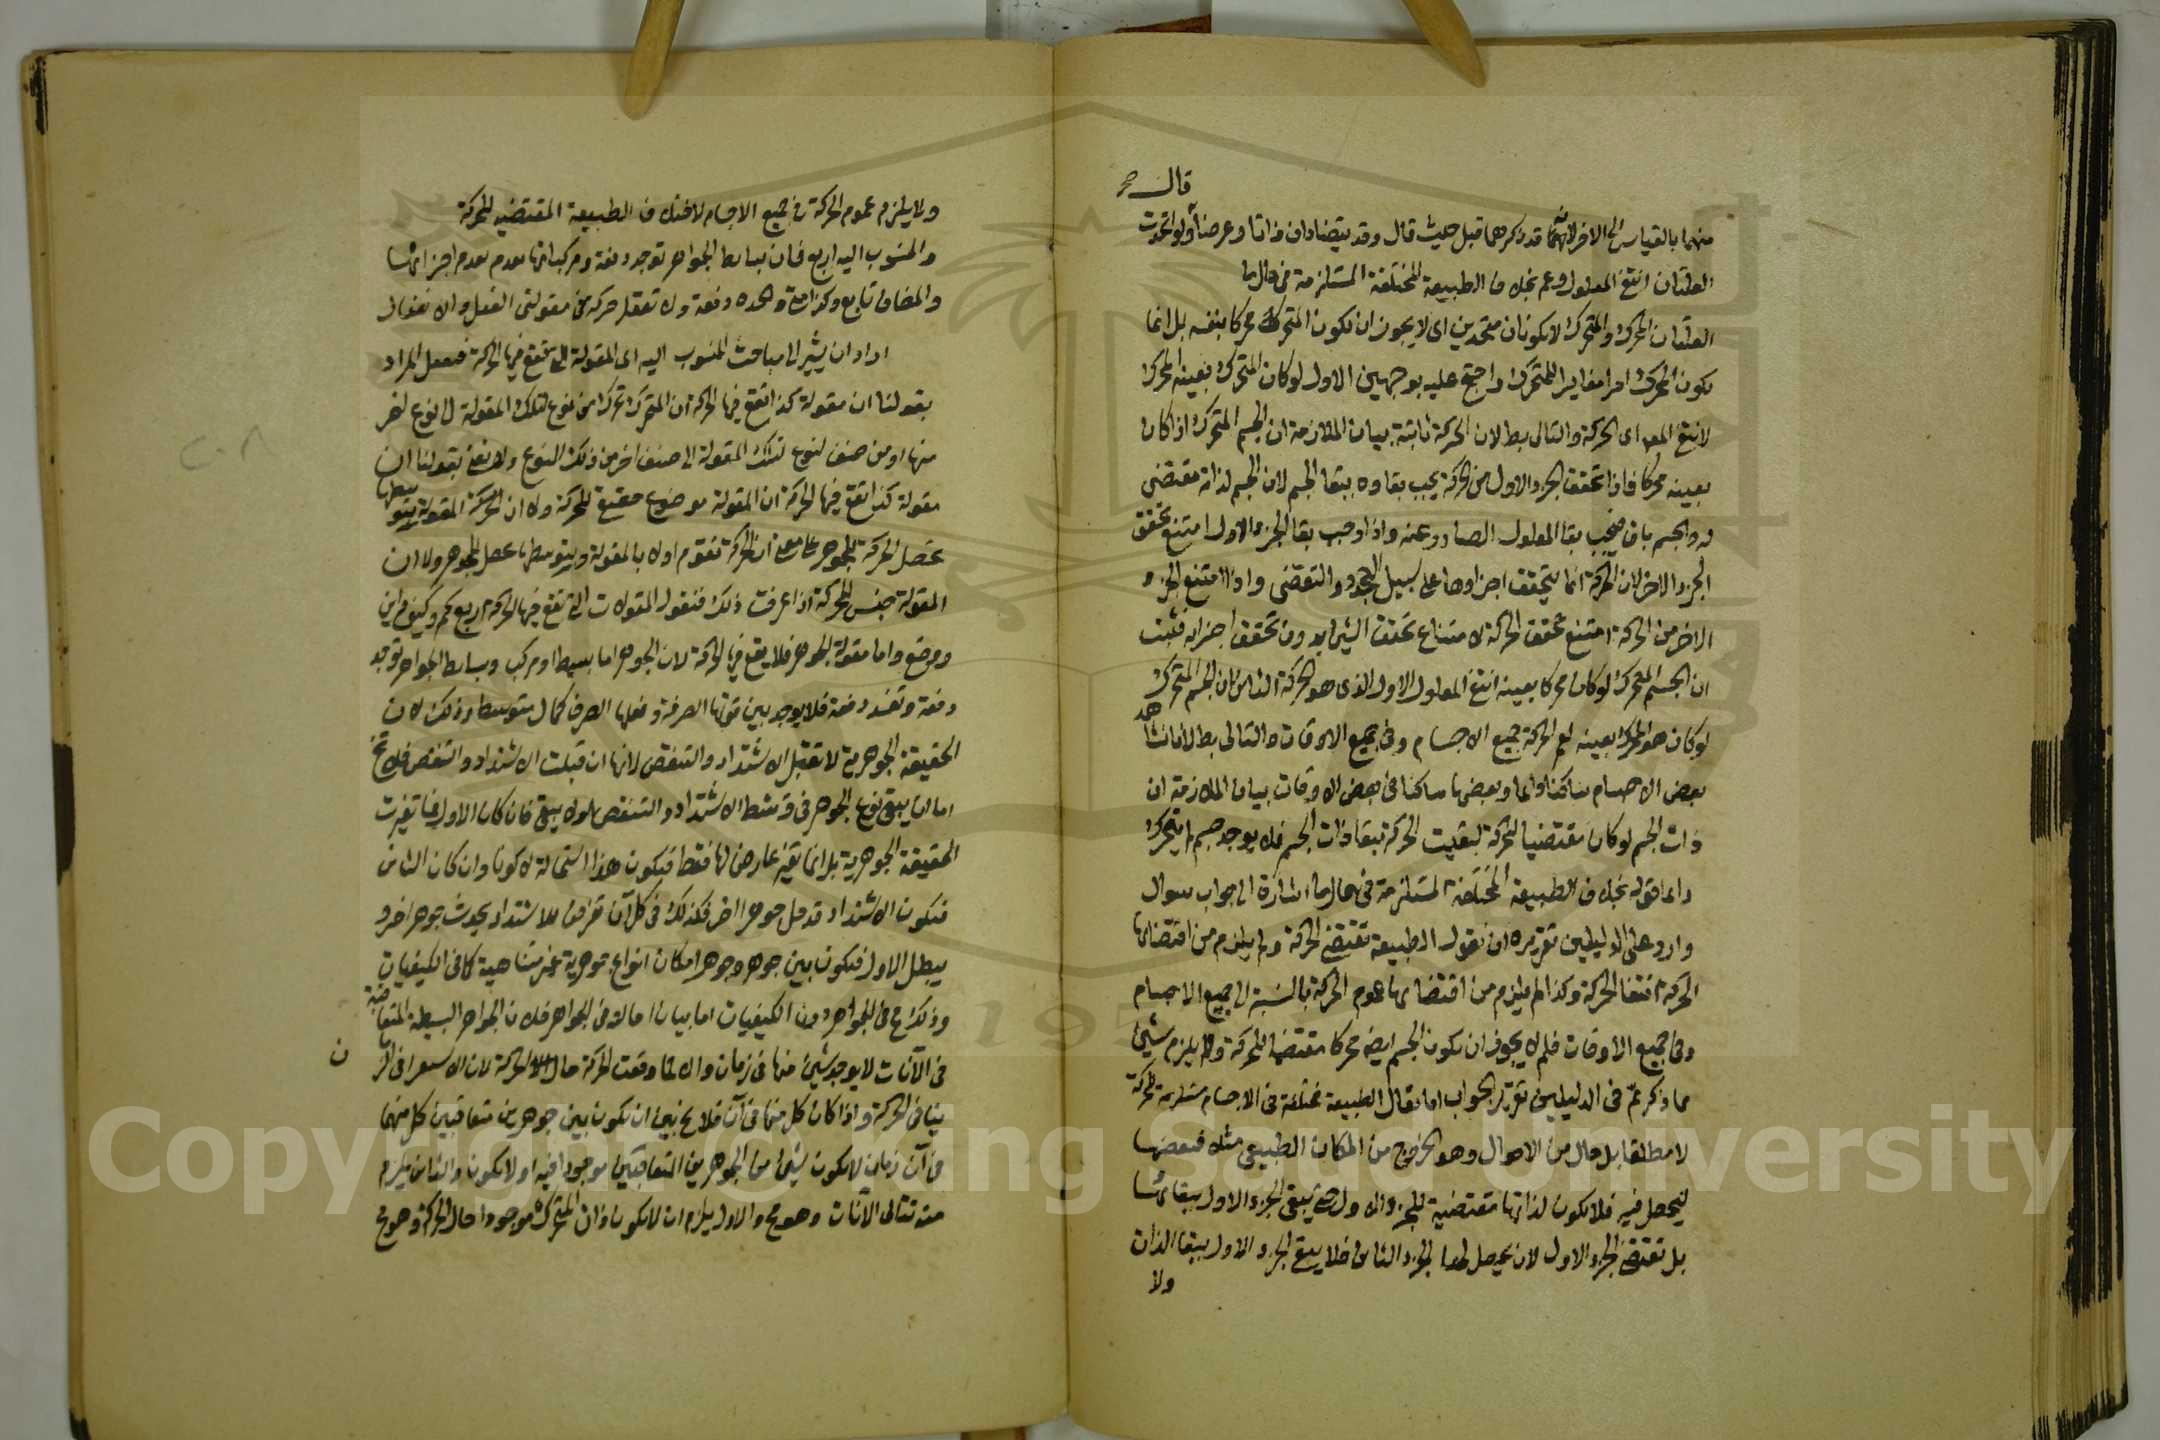 قال صح
منهما بالقياس الى الاخر لانهما قد ذكرهما قبل حيث قال وقد يتضادان ذاتا وعرضا ولو اتحدت
العلتان انتفى المعلول وعم بخلاف الطبيعة المختلفة المستلزمة فى حال ما
العلتان المحرك والمتحرك لا يكونان متحدين اى لا يجوز ان يكون المتحرك محركا بنفسه بل انما
يكون المحرك امرا مغايرا للمتحرك واحتج عليه بوجهين الاول لو كان المتحرك بعينه المحرك
لانتفى المعلول اى الحركة والتالى بط لان الحركة ثابتة بيان الملازمة ان الجسم المتحرك اذا كان
بعينه محركا فاذا تحقق الجزء الاول من الحركة يجب بقاوه ببقا الجسم لان الجسم لذاته مقتضى
له والجسم باق فيجب بقا المعلول الصادر عنه واذا وجب بقا الجزء الاول امتنع تحقق
الجزء الاخر لان الحركة انما يتحقق اجزاوها على سبيل التجدد والتقضى واذا امتنع الجزء
الاخر من الحركة امتنع تحقق الحركة لامتناع تحقق الشى بدون تحقق اجزايه فثبت
ان الجسم المتحرك لو كان محركا بعينه انتفى المعلول الاول الذى هو الحركة الثانى ان الجسم المتحرك
لو كان هو المحرك بعينه لعم الحركة جميع الاجسام وفى جميع الاوقات والتالى بط لانا نشاهد
بعض الاجسام ساكنا دايما وبعضها ساكنا فى بعض الاوقات بيان الملازمة ان
ذات الجسم لو كان مقتضيا للحركة لبقيت الحركة ببقا ذات الجسم فلا يوجد جسم لا يتحرك
واما قوله بخلاف الطبيعة المختلفة المستلزمة فى حال ما اشارة الى جواب سوال
وارد على الدليلين تقريره ان نقول الطبيعة تقتضى الحركة ولم يلزم من اقتضائها
الحركة انتفا الحركة وكذا لم يلزم من اقتضائها عموم الحركة بالنسبة الى جميع الاجسام
وفى جميع الاوقات فلم لا يجوز ان يكون الجسم ايضا محركا مقتضيا للحركة ولم يلزم شيئ
مما ذكرتم فى الدليلين تقرير الجواب انا نقول الطبيعة مختلفة فى الاجسام مستلزمة للحركة
لا مطلقا بل حال من الاحوال وهو الخروج من المكان الطبيعى مثلا فبعضها
ليحصل فيه فلا يكون لذاتها مقتضية للجزء الاول حتى يبقى الجزء الاول ببقائها
بل تقتضى الجزء الاول لان يحصل لها الجزء الثانى فلا يبقى الجزء الاول ببقا الذات
ولا
ولا يلزم عموم الحركة فى جميع الاجسام لاختلاف الطبيعة المقتضية للحركة
والمنسوب اليه اربع فان بسايط الجواهر توجد دفعة ومركباتها تعدم بعدم اجزائها
والمضاف تابع وكذا متى والجده دفعة ولا تعقل حركة فى مقولتى الفعل والانفعال
اراد ان يشير الى مباحث المنسوب اليه اى المقولة التى تقع فيها الحركة فنقول المراد
بقولنا ان مقولة كذا تقع فيها الحركة ان المتحرك تحرك من نوع لتلك المقولة الى نوع اخر
منها او من صنف لنوع لتلك المقولة الى صنف اخر من ذلك النوع ولا نعنى بقولنا ان
مقولة كذا تقع فيها الحركة ان المقولة موضوع حقيقى للحركة ولا ان المقولة بتوسطها
تحصل الحركة للجوهر على معنى ان الحركة تقوم اولا بالمقولة وبتوسطها تحصل للجوهر ولا ان
المقولة جنس للحركة اذا عرفت ذلك فنقول المقولات التى تقع فيها الحركة اربع كم وكيف واين
ووضع واما مقولة الجوهر فلا يقع فيها الحركة لان الجوهر اما بسيط او مركب وبسايط الجواهر توجد
دفعة وتفسد دفعة فلا يوجد بين قوتها الصرفة وفعلها الصرف كمال متوسط وذلك لان
الحقيقة الجوهرية لا تقبل الاشتداد والتنقص لانها ان قبلت الاشتداد والتنقص فلا يخ
اما ان يبقى نوع الجوهر فى وسط الاشتداد والتنقص او لا يبقى فان كان الاول فما تغيرت
الحقيقة الجوهرية بل انما تغير عارض لها فقط فيكون هذا استحالة لا كونا وان كان الثانى
فيكون الاشتداد قد حل جوهرا اخر فكذلك فى كل آن تفرض للاشتداد يحدث جوهر اخر و
يبطل الاول فيكون بين جوهر وجوهر امكان انواع جوهرية غير متناهية كما فى الكيفيات
وذلك مح فى الجواهر دون الكيفيات اما بيان احالته فى الجواهر فلان الجواهر البسيطة المتعاقبة
فى الآنات لا يوجد شيئ منها فى زمان والا لما وقعت الحركة حال الحركة لان الاستمرار فى الزمان
ينافى الحركة واذا كان كل منها فى آن فلا يخ بين ان يكون بين جوهرين متعاقبين كل منهما
فى آن زمان لا يكون شيئ من الجوهرين المتعاقبين موجودا فيه او لا يكون والثانى يلزم
منه تتالى الآنات وهو مح والاول يلزم ان لا يكون ذات المتحرك موجودا حال الحركة وهو مح